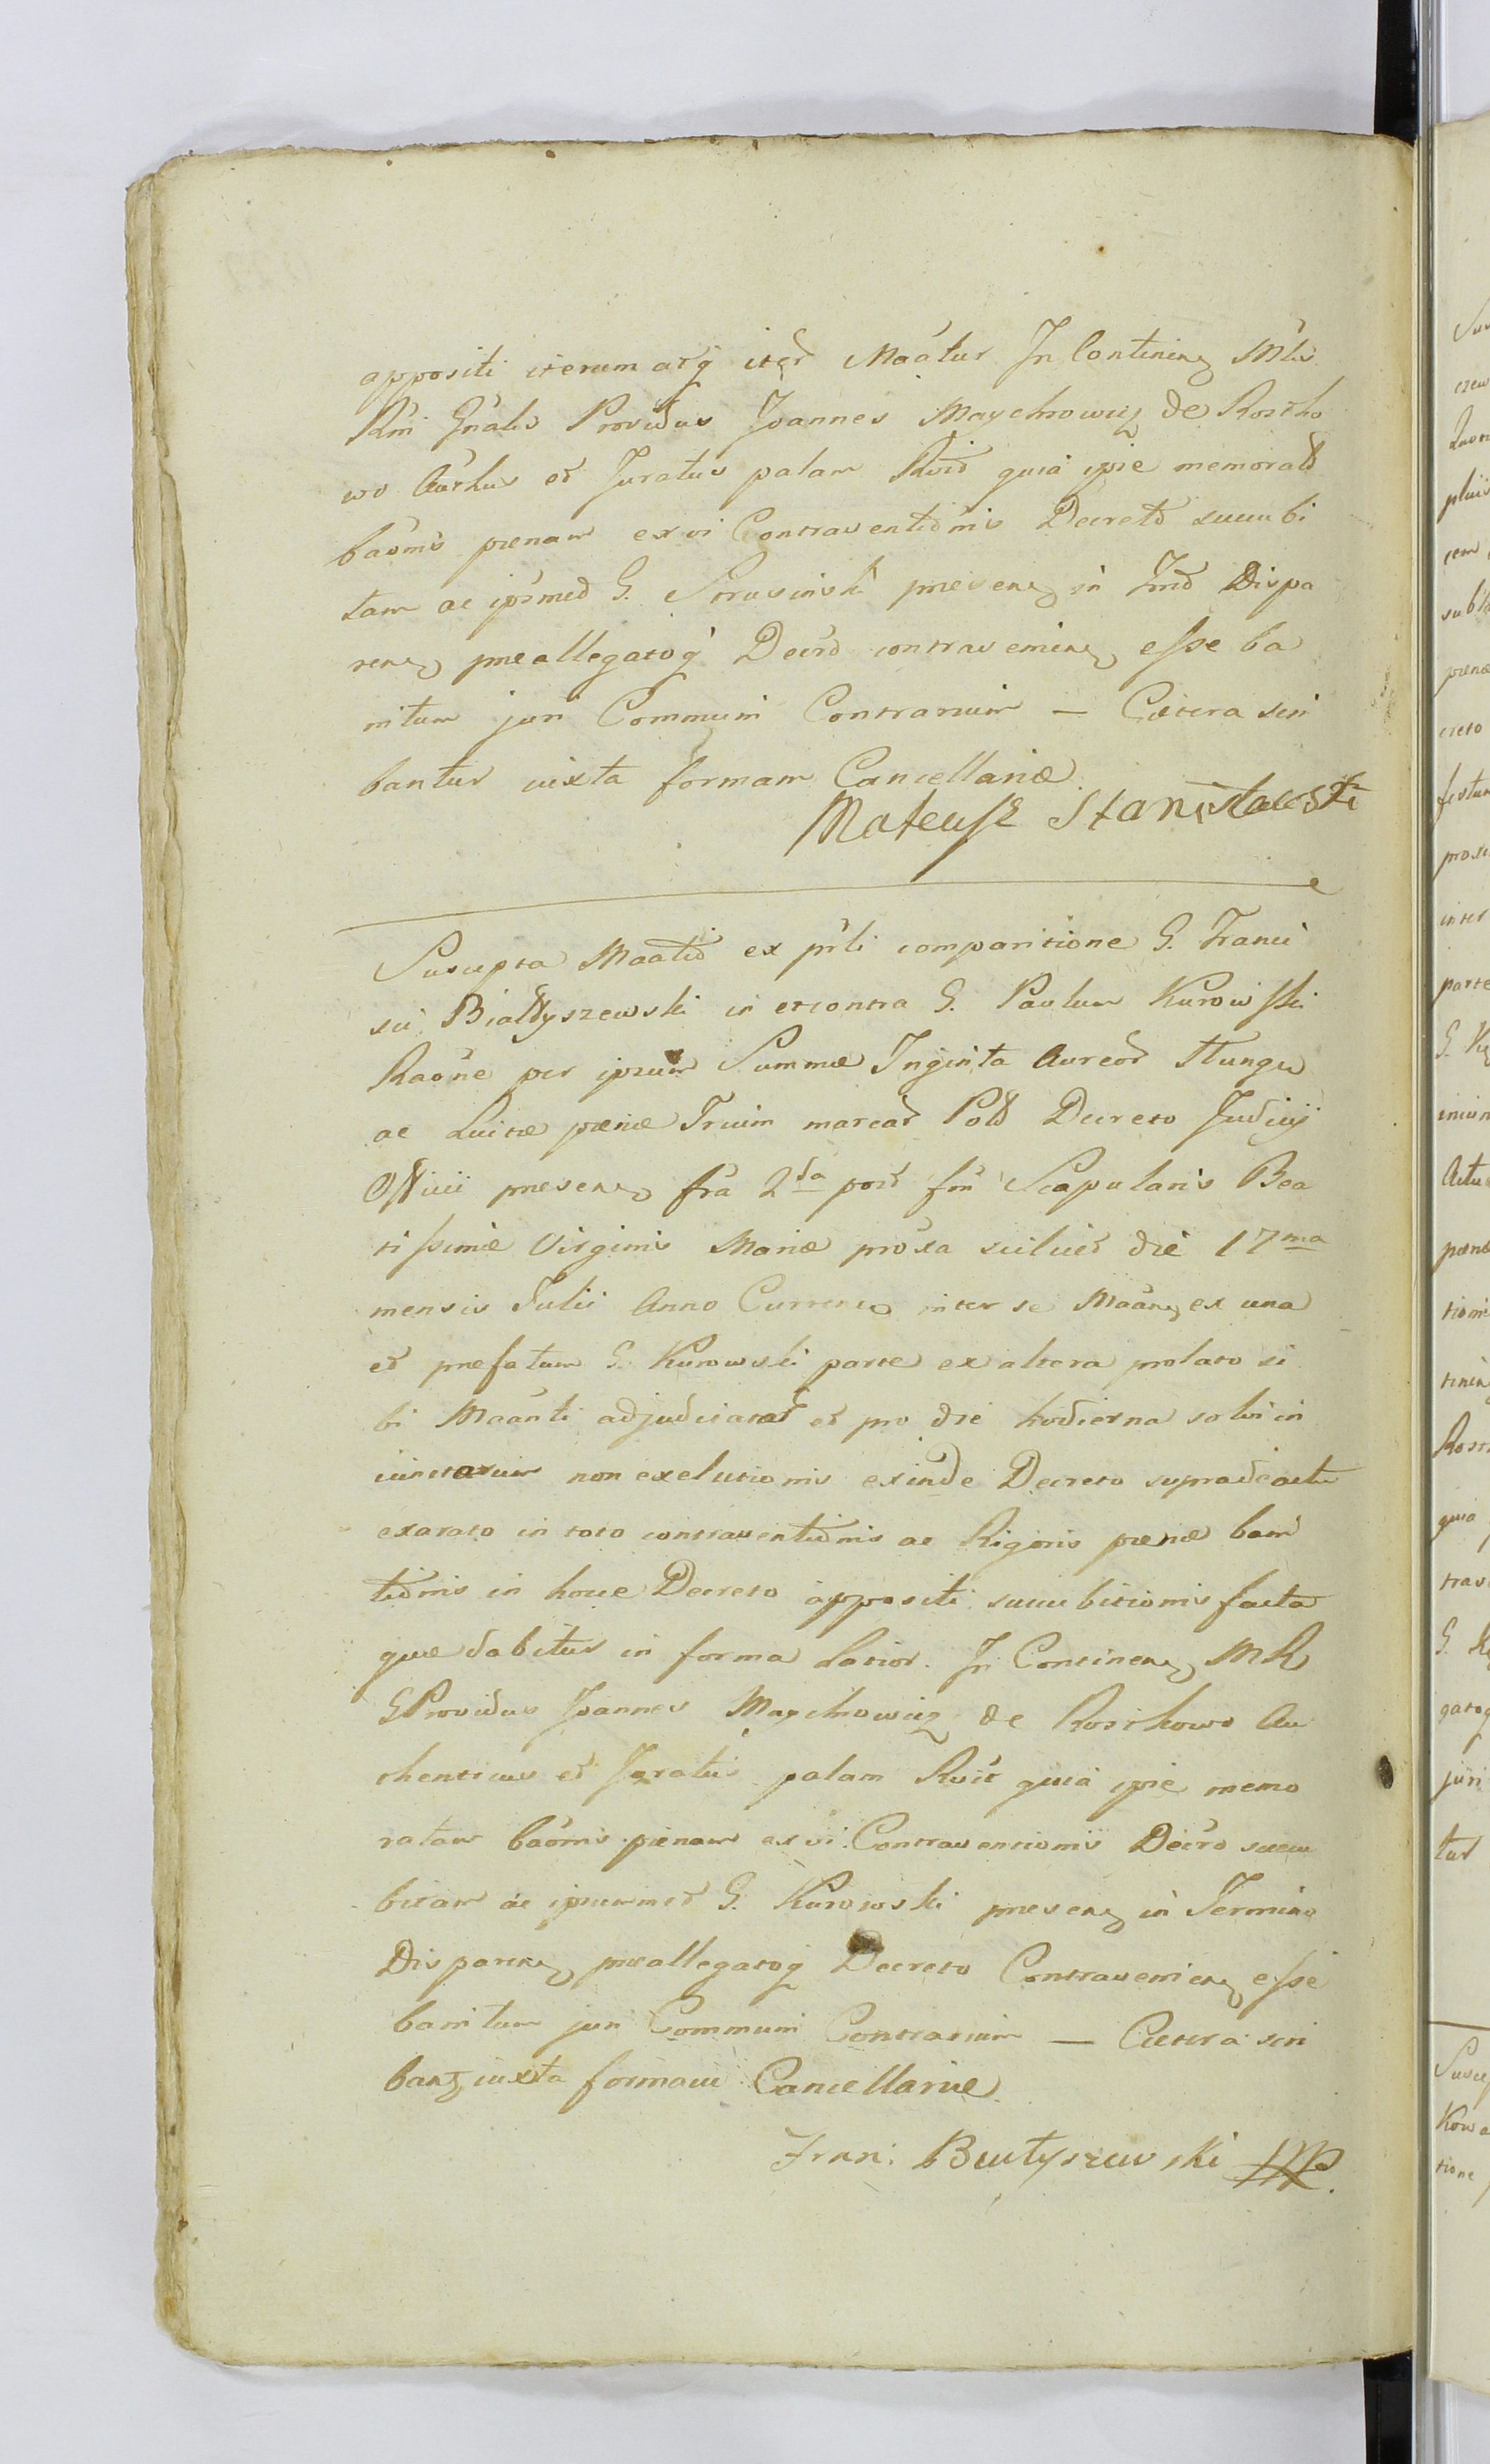 appositi iterum atq iter Maatur In Continen Mtis
Rm Gnalis Providus Joannes Maychrowicz de Rostko
wo Authus et Juratus palam Rvit quia ipse memorat
baomis pænam ex vi Contraventionis Decreto succubi
tam ac ipsmet G. presen in Tmo Dispa
ren præallegatoq Decro contravenien esse ba
nitum juri Communi Contrarium — Cætera scri
bantur iuxta formam Cancellariæ
Mateusz Stanisławski
Suscepta Maatio ex prli comparitione G. Franci
sci Białłyszewski in et contra G. Paulum Kurowski
Raône per ipsum Summæ Triginta Aureor Hungr
ac Luitæ pænæ Trium marcar Pol Decreto Judicij
Officii presen fra 2da post ftm Scapularis Bea
tissimæ Virginis Mariæ proxa scilicet die 17ma
mensis Julii Anno Curren inter se Maan ex una
et præfatum G. Kurowski parte ex altera prolato si
bi Maanti adjudicatar et pro die hodierna solvi in
iunctarum non exolutionis exinde Decreto supradeactu
exarato in toto contraventionis ac Rigoris pænæ bani
tionis in hocce Decreto appositi succubitionis facta
quæ dabitur in forma Latior. In Continen MR
G Providus Joannes Maychrowicz de Rostkowo Au
thenticus et Juratus palam Rvit quia ipse memo
ratam baomis pænam ex vi Contraventionis Decro succu
bitam ac ipsummet G. Kurowski presen in Termino
Disparen præallegatoq Decreto Contravenien esse
banitum juri Communi Contrarium — Cætera scri
bant iuxta formam Cancellariæ
Fran: Białyszewski MP.